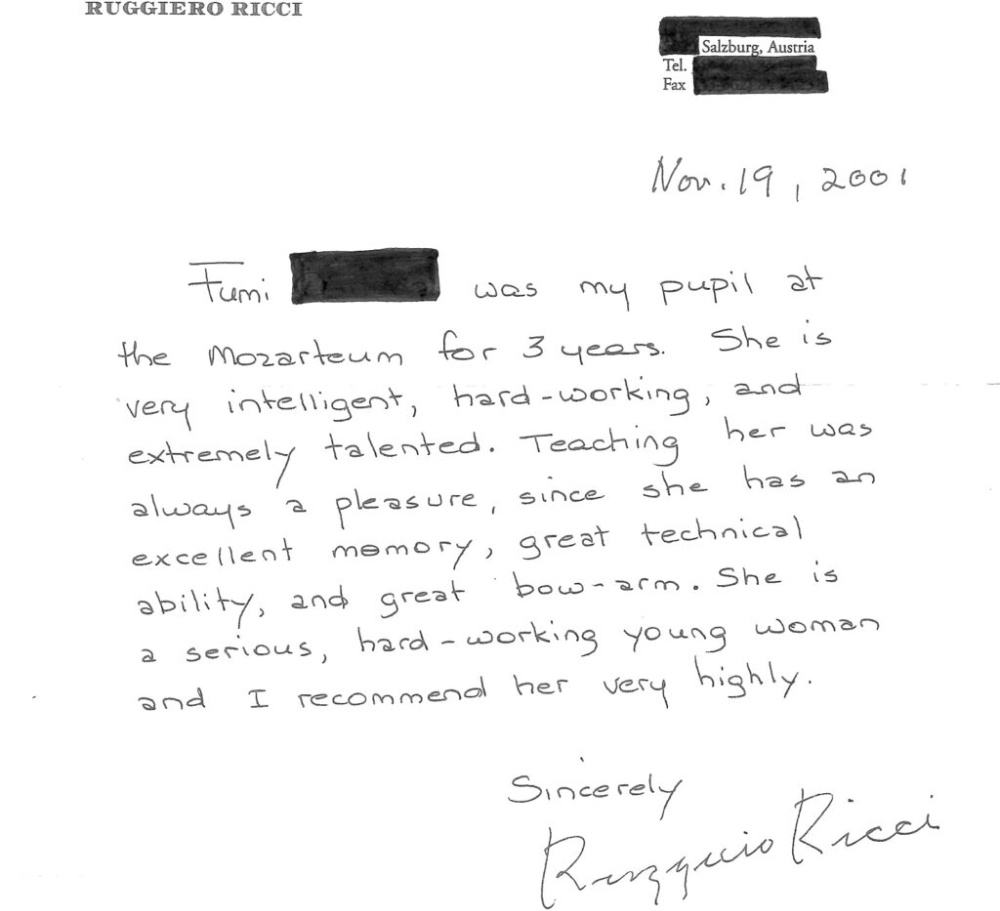 RUGGIERO RICCI
Salzburg, Austria
Tel.
Fax
Nov. 19, 2001
Fumi was my pupil at
the Mozarteum for 3 years. She is
very intelligent, hard-working, and
extremely talented. Teaching her was
always a pleasure, since she has an
excellent memory, great technical
ability, and great bow-arm. She is
a serious, hard-working young woman
and I recommend her very highly.
Sincerely
Ruggiero Ricci